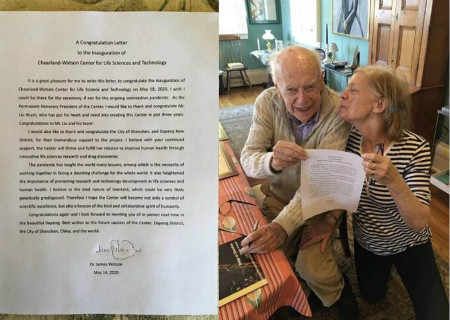 A Congratulation Letter
to the Inauguration of
Cheerland-Watson Center for Life Sciences and Technology
It is a great pleasure for me to write this letter, to congratulate the inauguration of
Cheerland-Watson Center for Life Science and Technology on May 18, 2020. I wish I
could be there for the ceremony, if not for the ongoing coronavirus pandemic. As the
Permanent Honorary President of the Center, I would like to thank and congratulate Mr.
Liu Ruyin, who has put his heart and mind into creating this Center in just three years.
Congratulations to Mr. Liu and his team!
I would also like to thank and congratulate the City of Shenzhen, and Dapeng New
District, for their tremendous support to the project. I believe with your continued
support, the Center will thrive and fulfill her mission to improve human health through
innovative life sciences research and drug discoveries.
The pandemic has taught the world many lessons, among which is the necessity of
working together in facing a daunting challenge for the whole world. It also heightened
the importance of promoting research and technology development in life sciences and
human health. I believe in the best nature of mankind, which could be very likely
genetically predisposed. Therefore I hope the Center will become not only a symbol of
scientific excellence, but also a beacon of the kind and collaborative spirit of humanity.
Congratulations again and I look forward to meeting you all in person next time in
the beautiful Dapeng. Best wishes to the future success of the Center, Dapeng District,
the City of Shenzhen, China, and the world.
Dr. James Watson
May 14, 2020